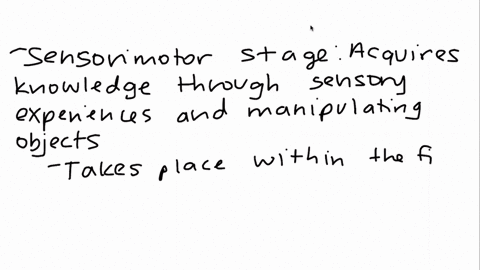 -Sensorimotor stage: Acquires
knowledge through sensory
experiences and manipulating
objects
-Takes place within the fi